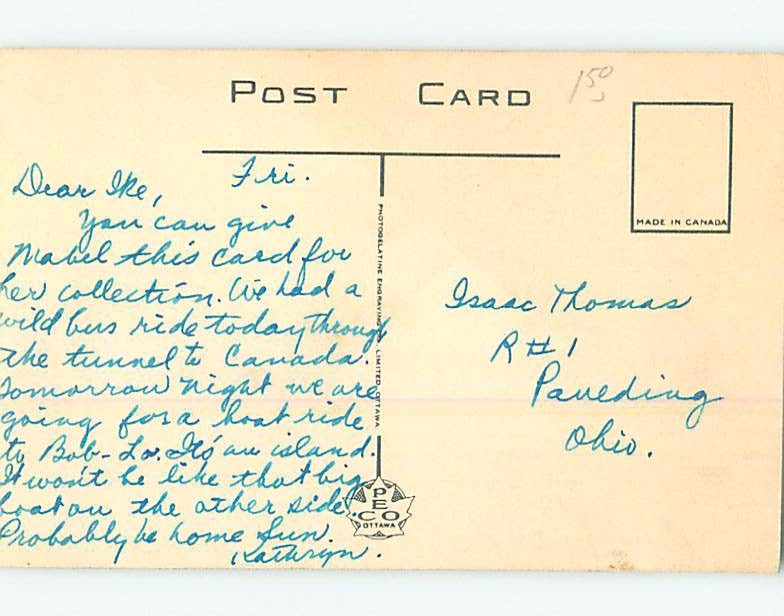 POST CARD
1 50
MADE IN CANADA
Fri.
Dear Ike,
You can give
Mabel this card for
her collection. We had a
wild bus ride today through
the tunnel to Canada.
Tomorrow night we are
going for a boat ride
to Bob-Lo. It's an island.
It won't be like that big
boat on the other side.
Probably be home Sun.
Kathryn.
PHOTOGELATINE ENGRAVING LIMITED. OTTAWA
PECO
OTTAWA
Isaac Thomas
R # 1
Paueding
Ohio.